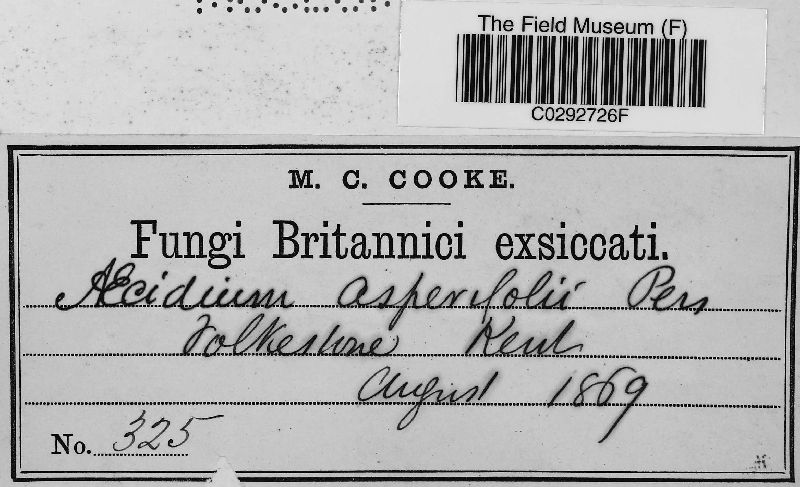 The Field Museum (F)
C0292726F
M. C. COOKE.
Fungi Britannici exsiccati.
Æcidium asperifolii Pers
Folkestone Kent
August 1869
No. 325